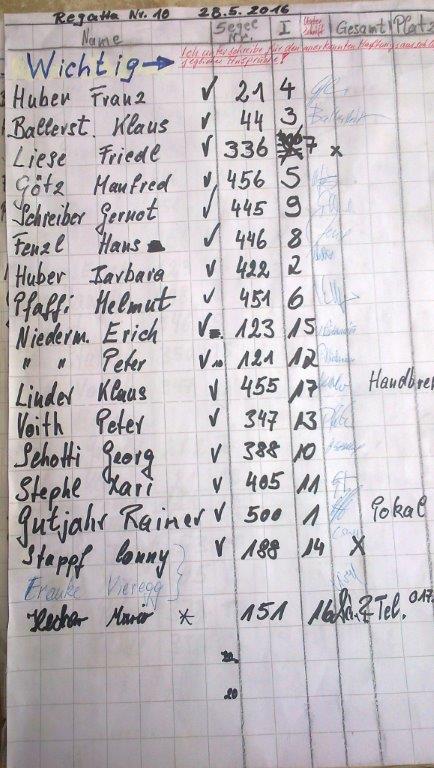 Regatta Nr. 10 28.5.2016
Name Segel Nr. I Gesamt Platz
Ich unterschreibe für den anerkannten Haftungsausschluss
jeglicher Ansprüche!
Wichtig →
Huber Franz ✓ 21 4
Ballerst. Klaus ✓ 44 3
Liese Friedl ✓ 336 7 x
Götz Manfred ✓ 456 5
Schreiber Gernot ✓ 445 9
Fenzl Hans ✓ 446 8
Huber Barbara ✓ 422 2
Pfaffi Helmut ✓ 451 6
Niederm. Erich ✓ 123 15
" " Peter ✓ 121 12
Linder Klaus ✓ 455 17 Handbrem
Voith Peter ✓ 347 13
Schotti Georg ✓ 388 10
Stephl Xari ✓ 405 11
Gutjahr Rainer ✓ 500 1 Pokal
Stappf Conny ✓ 188 14 X
Frauke Vieregg
* 151 16 Tel. 017
20